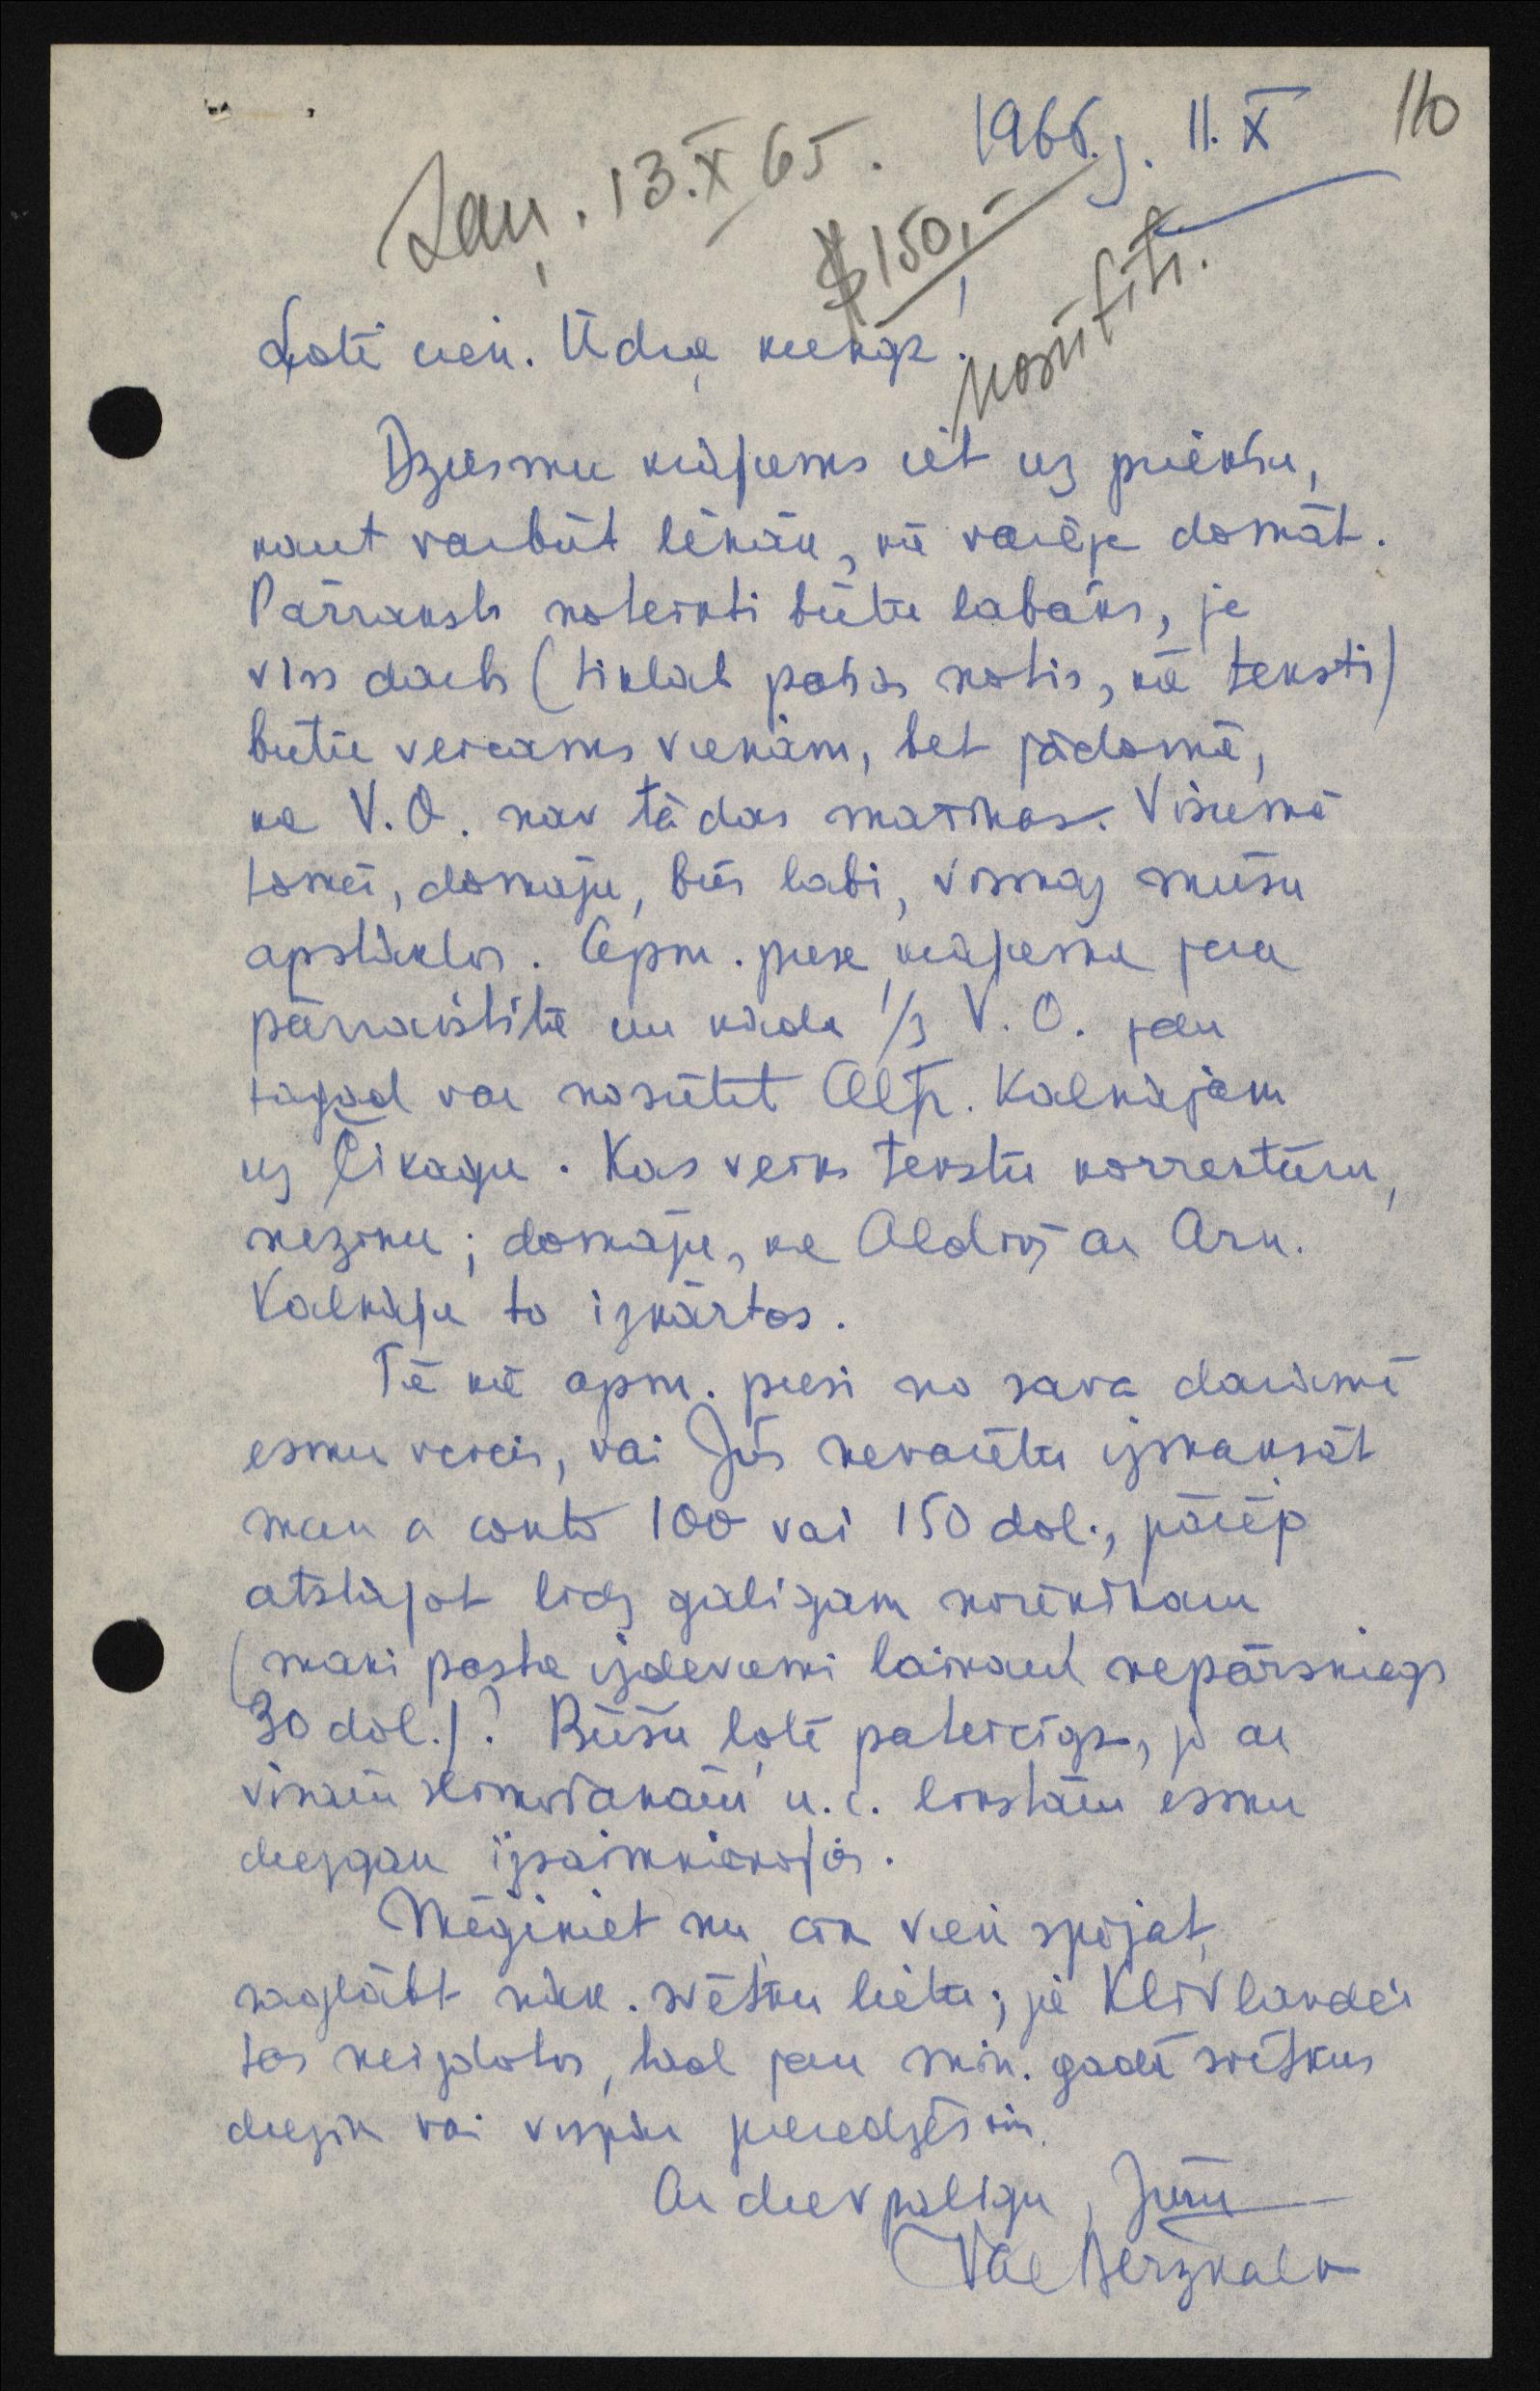 110
1965.g. 11. X
Saņ. 13. X 65.
$150,-
nosūtīti.
Ļoti cien. Ūdra kungs!
Dziesmu krājums iet uz priekšu,
kaut varbūt lēnāk, kā varēja domāt.
Pārraksts noteikti būtu labāks, ja
viss darbs (tiklab pašas notis, kā teksti)
būtu veicams vienam, bet jādomā,
ka V.O. nav tādas mašīnas. Visumā
tomēr, domāju, būs labi, vismaz mūsu
apstākļos. Apm. puse krājuma jau
pārrakstīta un kādu 1/3 V.O. jau
tagad var nosūtīt Alfr. Kalnājam
uz Čikagu. Kas veiks tekstu korrektūru,
nezinu; domāju, ka Aldiņš ar Arn.
Kalnāju to izkārtos.
Tā kā apm. pusi no sava darāmā
esmu veicis, vai Jūs nevarētu izmaksāt
man a conto 100 vai 150 dol., pārējo
atstājot līdz galīgam norēķinam
(mani pasta izdevumi laikam nepārsniegs
30 dol.)? Būšu ļoti pateicīgs, jo ar
visām u.c. lietām esmu
diezgan izsaimniekojies.
Mēģiniet nu, cik vien spējat,
saglābt nāk. svētku lietu; ja Klīvlandei
tas neizdotos, tad jau min. gadā svētkus
diezin vai vispār piedzīvosim.
Ar dievpalīgu, Jūsu
Val Berzkaln